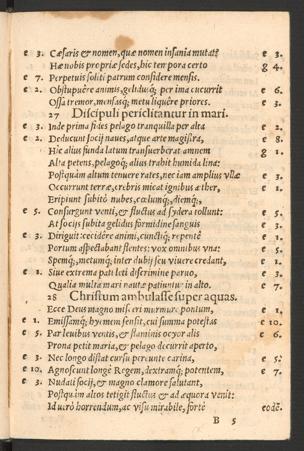 e 3. Cæsaris & nomen, quæ nomen insania mutat? e 3.
Hæ nobis propriæ sedes, hic tempora certo g 4.
e 7. Perpetuis soliti patrum considere mensis.
e 2. Obstupuêre animis, gelidusq́; per ima cucurrit e 6.
Ossa tremor, mensasq́; metu liquêre priores. e 3.
27 Discipuli periclitantur in mari.
e 3. Inde prima fides pelago tranquilla per alta e 2.
e 2. Deducunt socij naues, atque arte magistra, e 8.
Hic alius funda latum transuerberat amnem g 1.
Alta petens, pelagoq́; alius trahit humida lina:
Postquàm altum tenuere rates, nec iam amplius vllæ e 3.
Occurrunt terræ, crebris micat ignibus æther, e 1.
Eripiunt subitò nubes, cælumq́;, diemq́;,
e 5. Consurgunt venti, & fluctus ad sydera tollunt: e 5.
At socijs subita gelidus formidine sanguis e 3.
e 3. Diriguit: cecidêre animi, cunctiq́; repentè e 1.
Portum aspectabant flentes: vox omnibus vna: e 5.
Spemq́;, metumq́; inter dubij seu viuere credant, e 1.
e 1. Siue extrema pati leti discrimine paruo, e 3.
Qualia multa mari nautæ patiuntur in alto. e 7.
28 Christum ambulasse super aquas.
Ecce Deus magno misceri murmure pontum, e 1.
e 1. Emissamq́; hyemem sensit, cui summa potestas e 10.
e 5. Par leuibus ventis, & fulminis ocyor alis e 6.
Prona petit maria, & pelago decurrit aperto, e 5.
e 3. Nec longo distat cursu præeunte carina, e 5.
e 10. Agnoscunt longè Regem, dextramq́; potentem, e 7.
e 3. Nudati socij, & magno clamore salutant,
Postquàm altos tetigit fluctus & ad æquora venit:
Id verò horrendum, ac visu mirabile, fertè eodē.
B 5